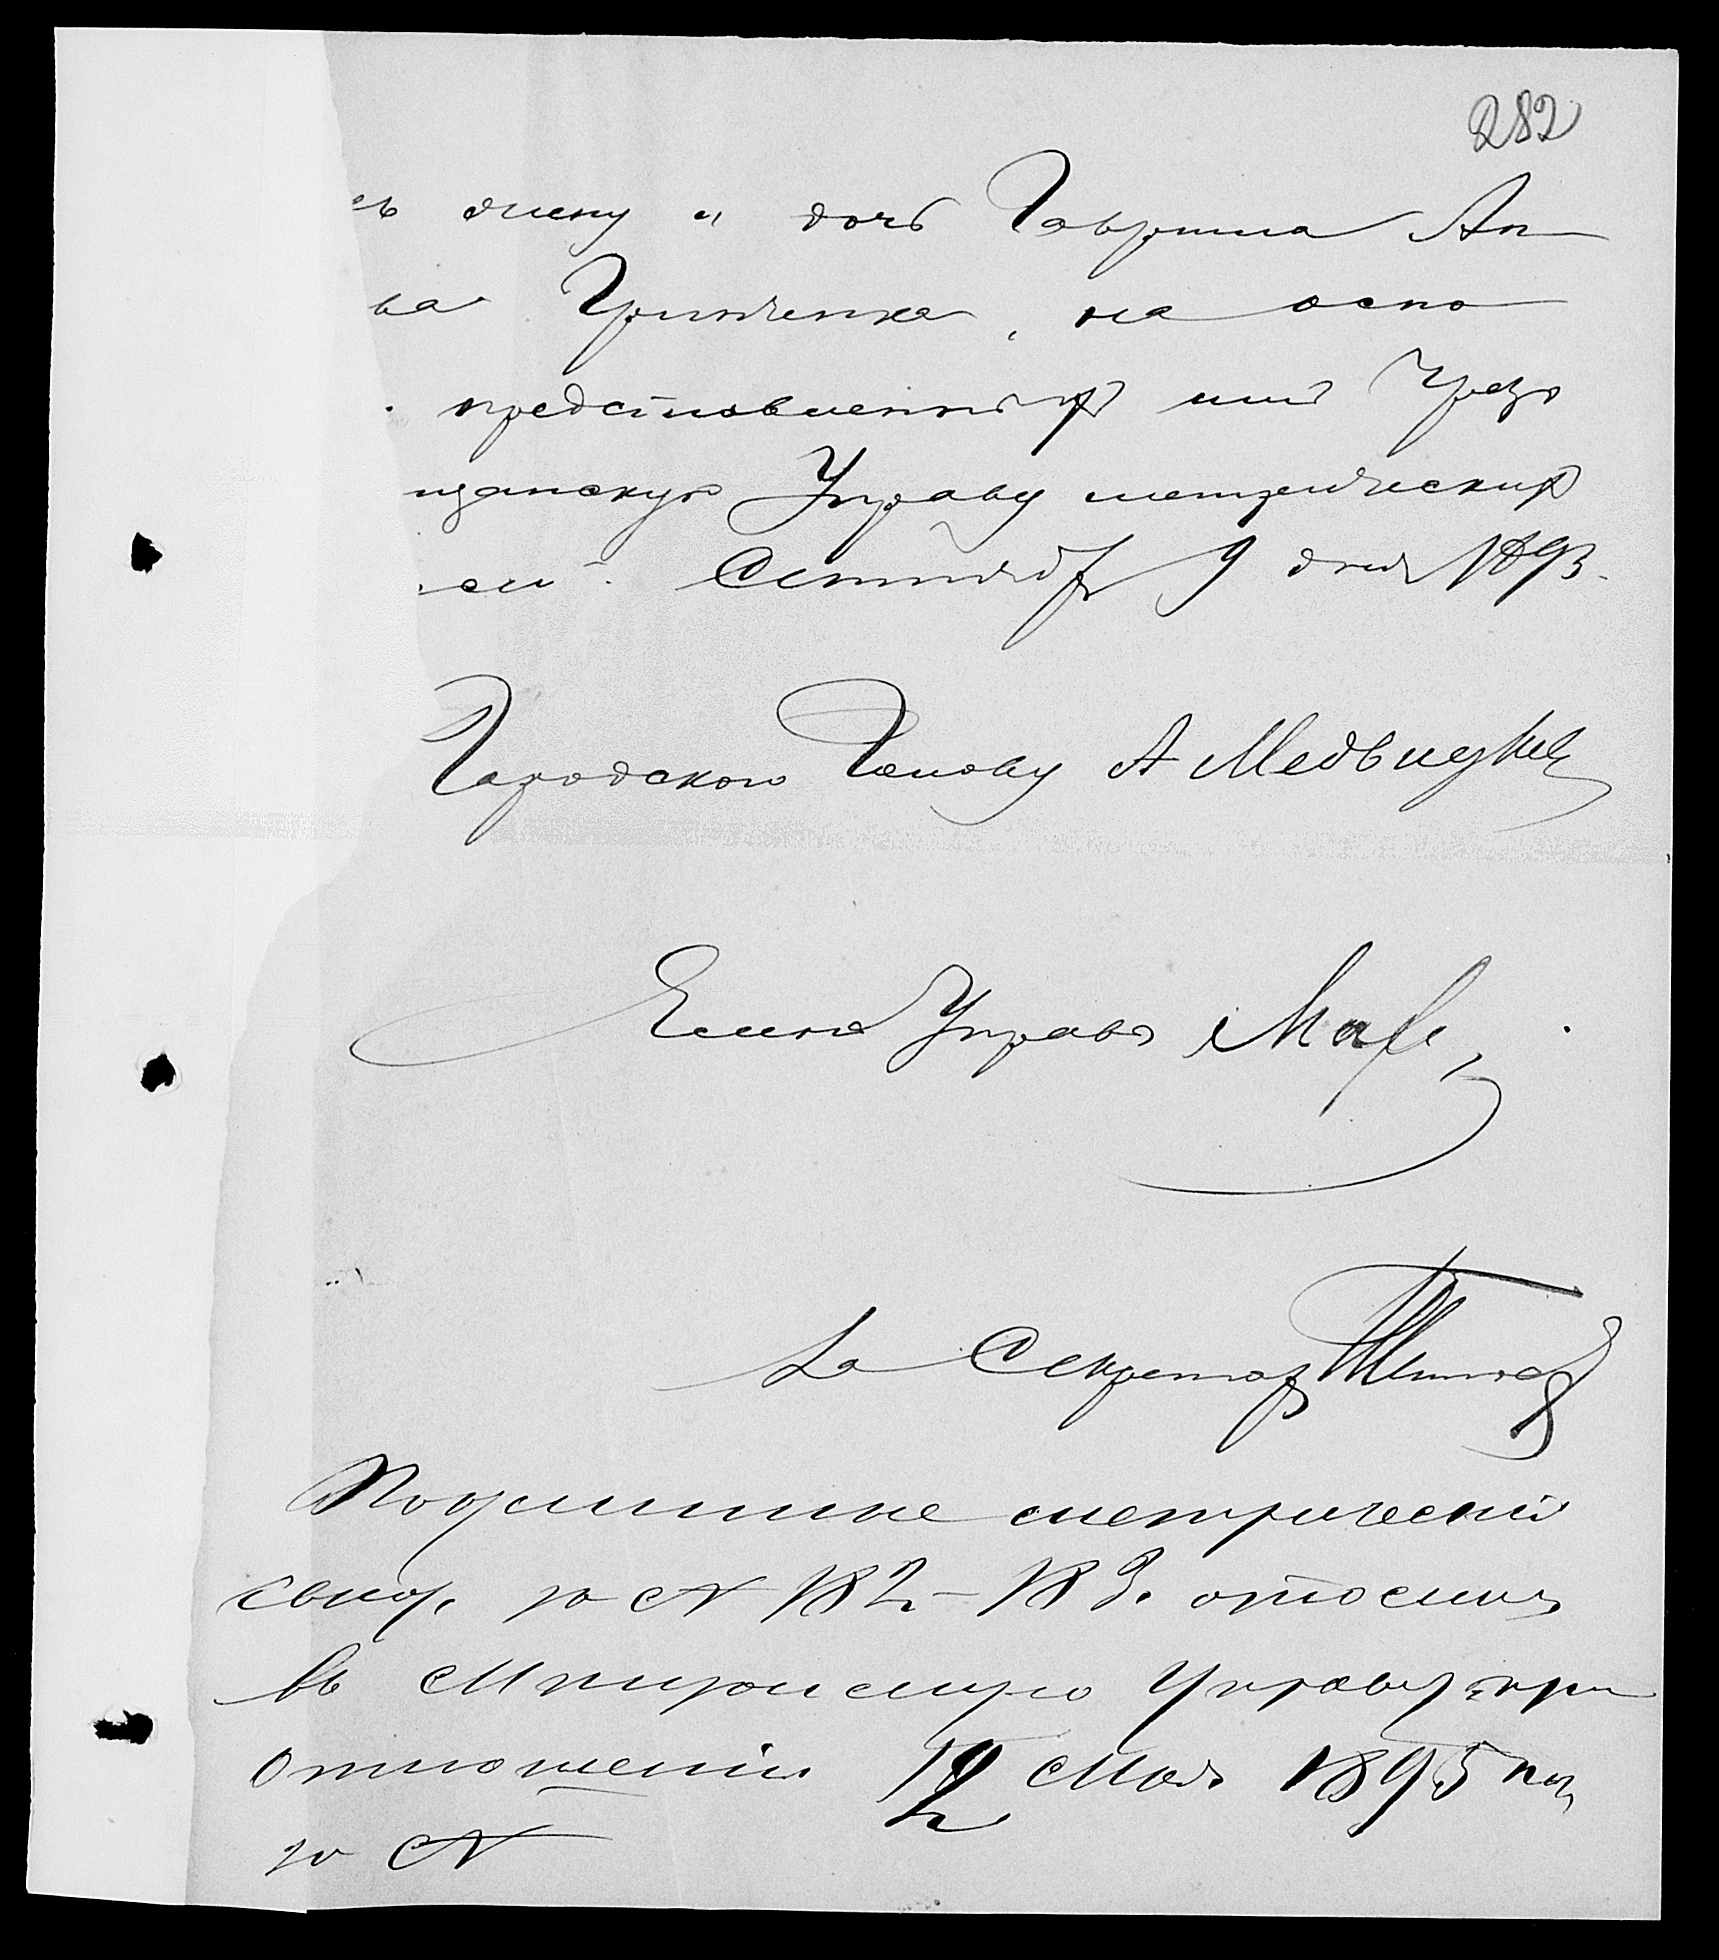 282
ъ жену и дочь Гаврила Ан
ва Гринченка, на осно
представленныхъ имъ чрезъ
щанскую Управу метрическихъ
Сентября 9 дня 1893.
Городского Голову А Медвидкевъ
Членъ Управы
За Секретаря
Подлинные метрическiя
свид. за № 182–183. отосланы
въ Мещанскую Управу при
отношенiи 12 Мая 1895 года
за №